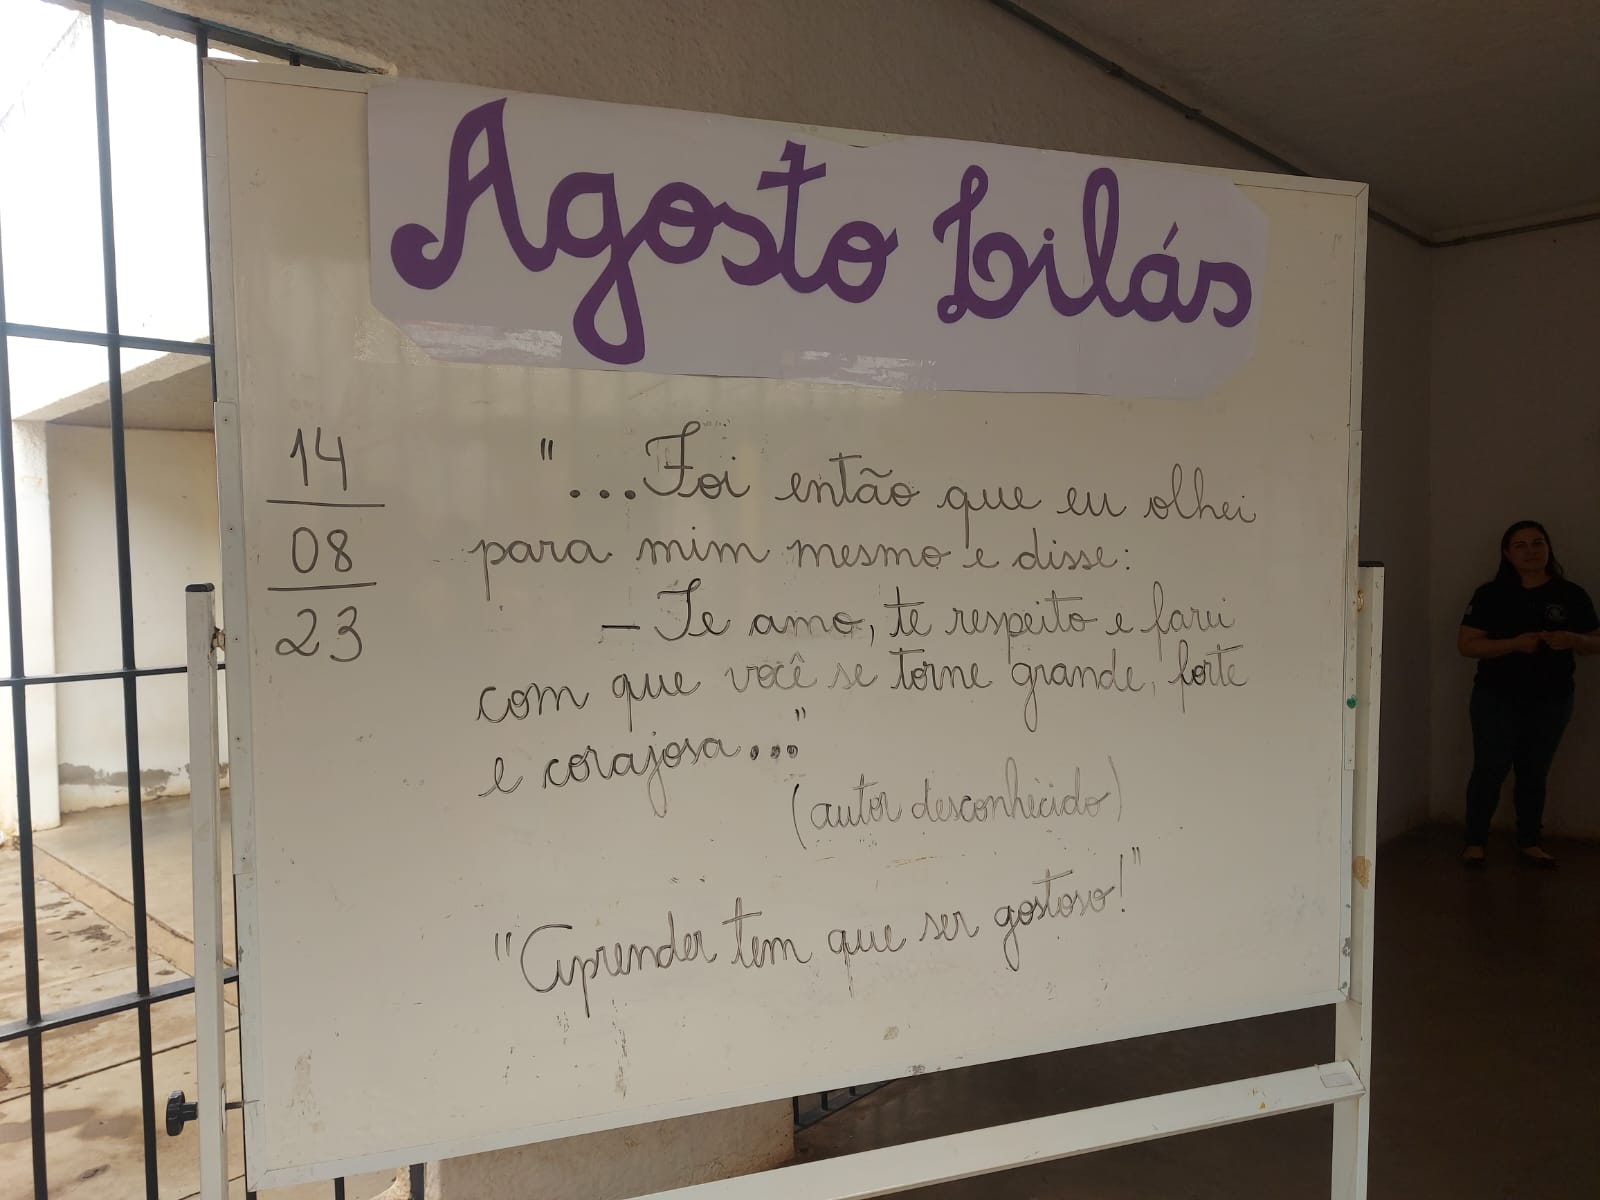 Agosto Lilás
14
08
23
"...Foi então que eu olhei
para mim mesmo e disse:
– Te amo, te respeito e farei
com que você se torne grande, forte
e corajosa..."
(autor desconhecido)
"Aprender tem que ser gostoso!"